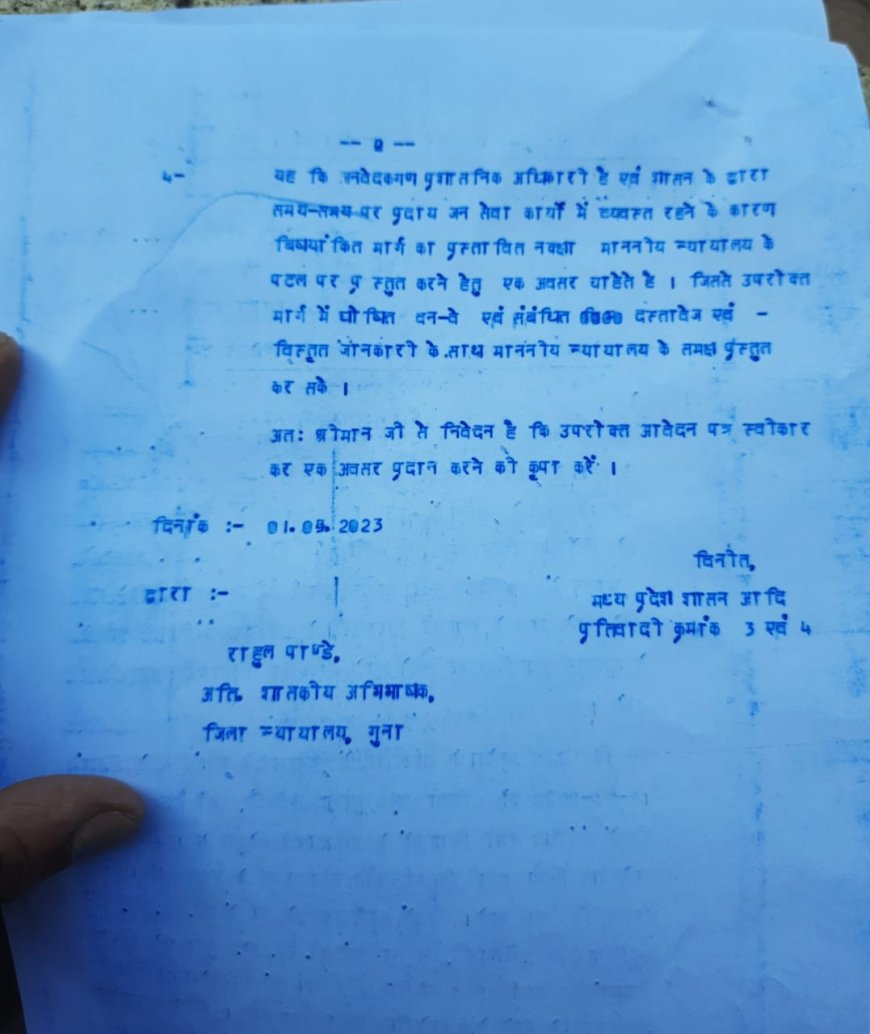 -- 2 --
4- यह कि अनवेदकगण प्रशासनिक अधिकारी है एवं शासन के द्वारा
समय-समय पर प्रदाय जन सेवा कार्यो में व्यवस्त रहने के कारण
बिषयांकित मार्ग का प्रस्तावित नक्शा माननीय न्यायालय के
पटल पर प्रस्तुत करने हेतु एक अवसर चाहेते है । जिससे उपरोक्त
मार्ग में घोषित वन-वे एवं संबंधित दस्तावेज एवं -
विस्तृत जानकारी के साथ माननीय न्यायालय के समक्ष प्रस्तुत
कर सके ।
अतः श्रीमान जी से निवेदन है कि उपरोक्त आवेदन पत्र स्वीकार
कर एक अवसर प्रदान करने की कृपा करें ।
दिनांक :- 01.05.2023
विनीत,
द्वारा :-
मध्य प्रदेश शासन आदि
प्रतिवादी क्रमांक 3 एवं 4
राहुल पाण्डे,
अति. शासकीय अभिभाषक,
जिला न्यायालय, गुना